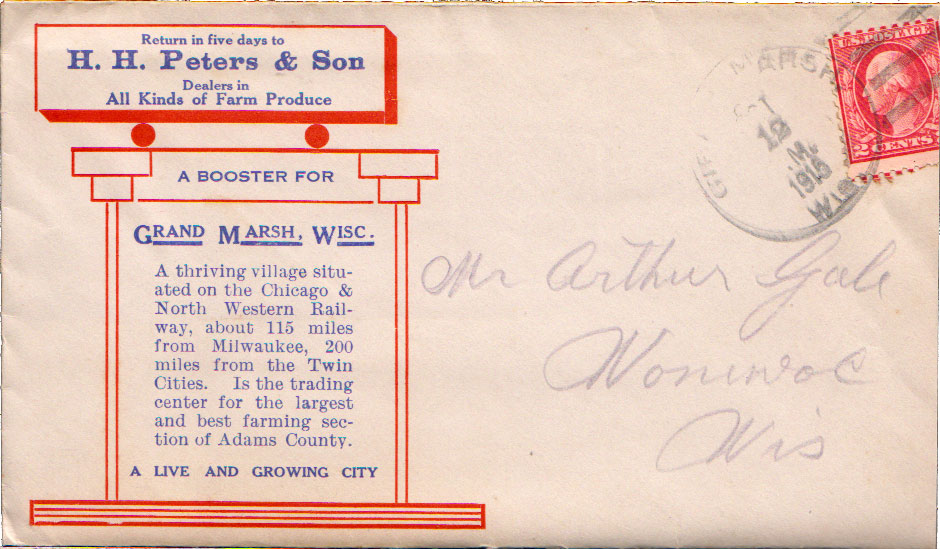 Return in five days to
H. H. Peters & Son
Dealers in
All Kinds of Farm Produce
A BOOSTER FOR
GRAND MARSH, WISC.
A thriving village situ-
ated on the Chicago &
North Western Rail-
way, about 115 miles
from Milwaukee, 200
miles from the Twin
Cities. Is the trading
center for the largest
and best farming sec-
tion of Adams County.
A LIVE AND GROWING CITY
U.S. POSTAGE
2 CENTS 2
12
M.
1915
WIS
Mr Arthur Gale
Wonewoc
Wis